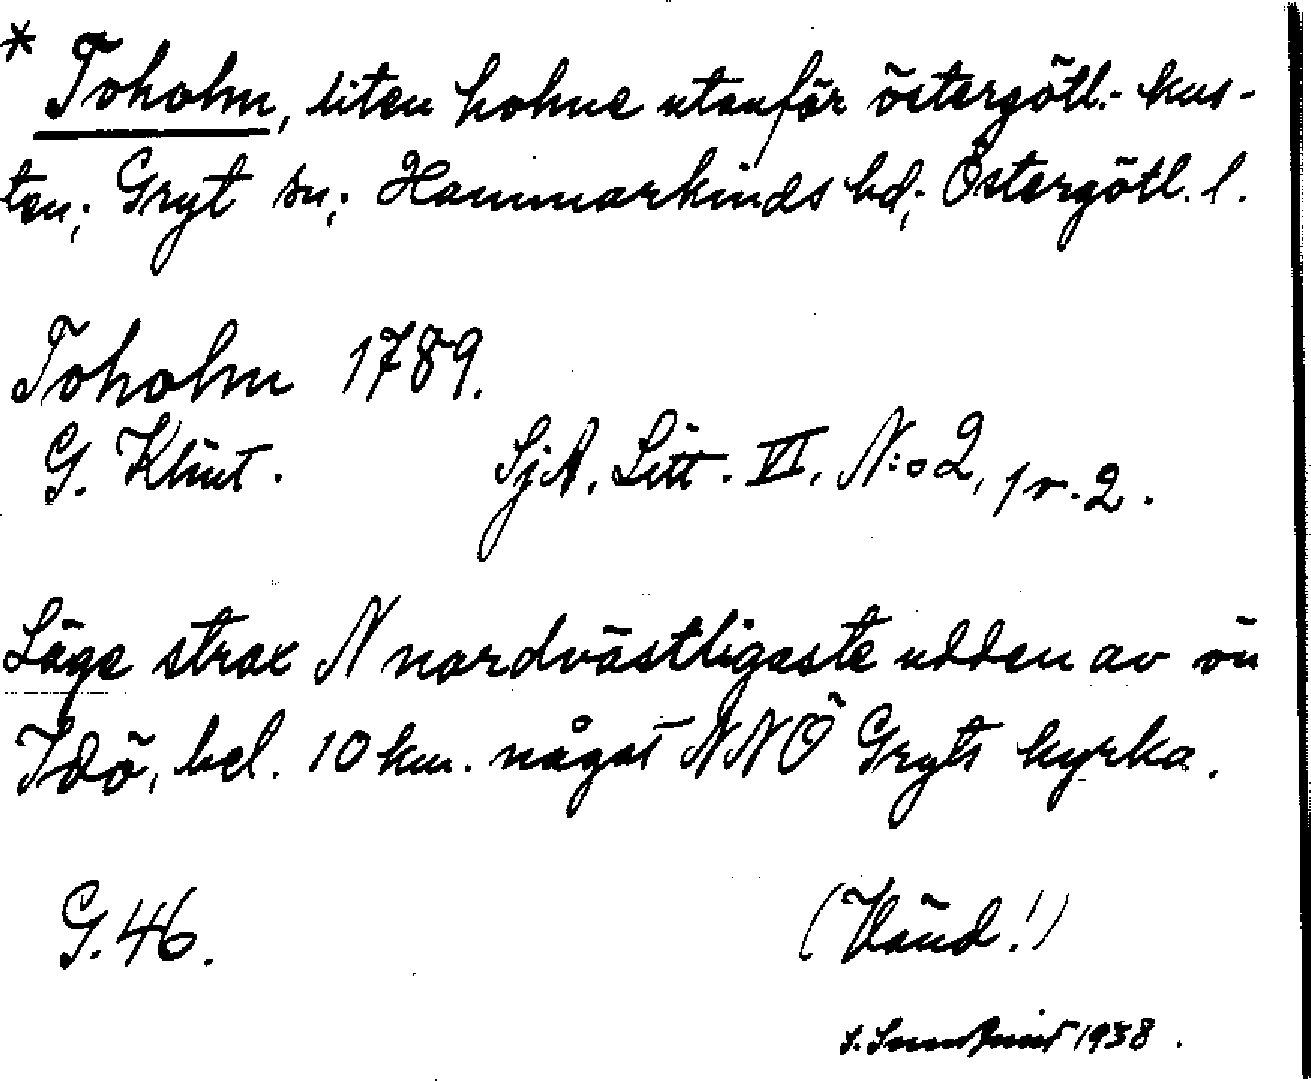 * Toholm, liten holme utanför östergötl.- kus-
ten; Gryt sn; Hammarkinds hd; Östergötl. l.
Toholm 1789.
G. Klint. SjA. Litt. VI. N:o 2, 1 r. 2.
Läge strax N nordvästligaste udden av ön
Idö, bel. 10 km. något NNÖ Gryts kyrka.
G. 46. (Vänd!)
1938.